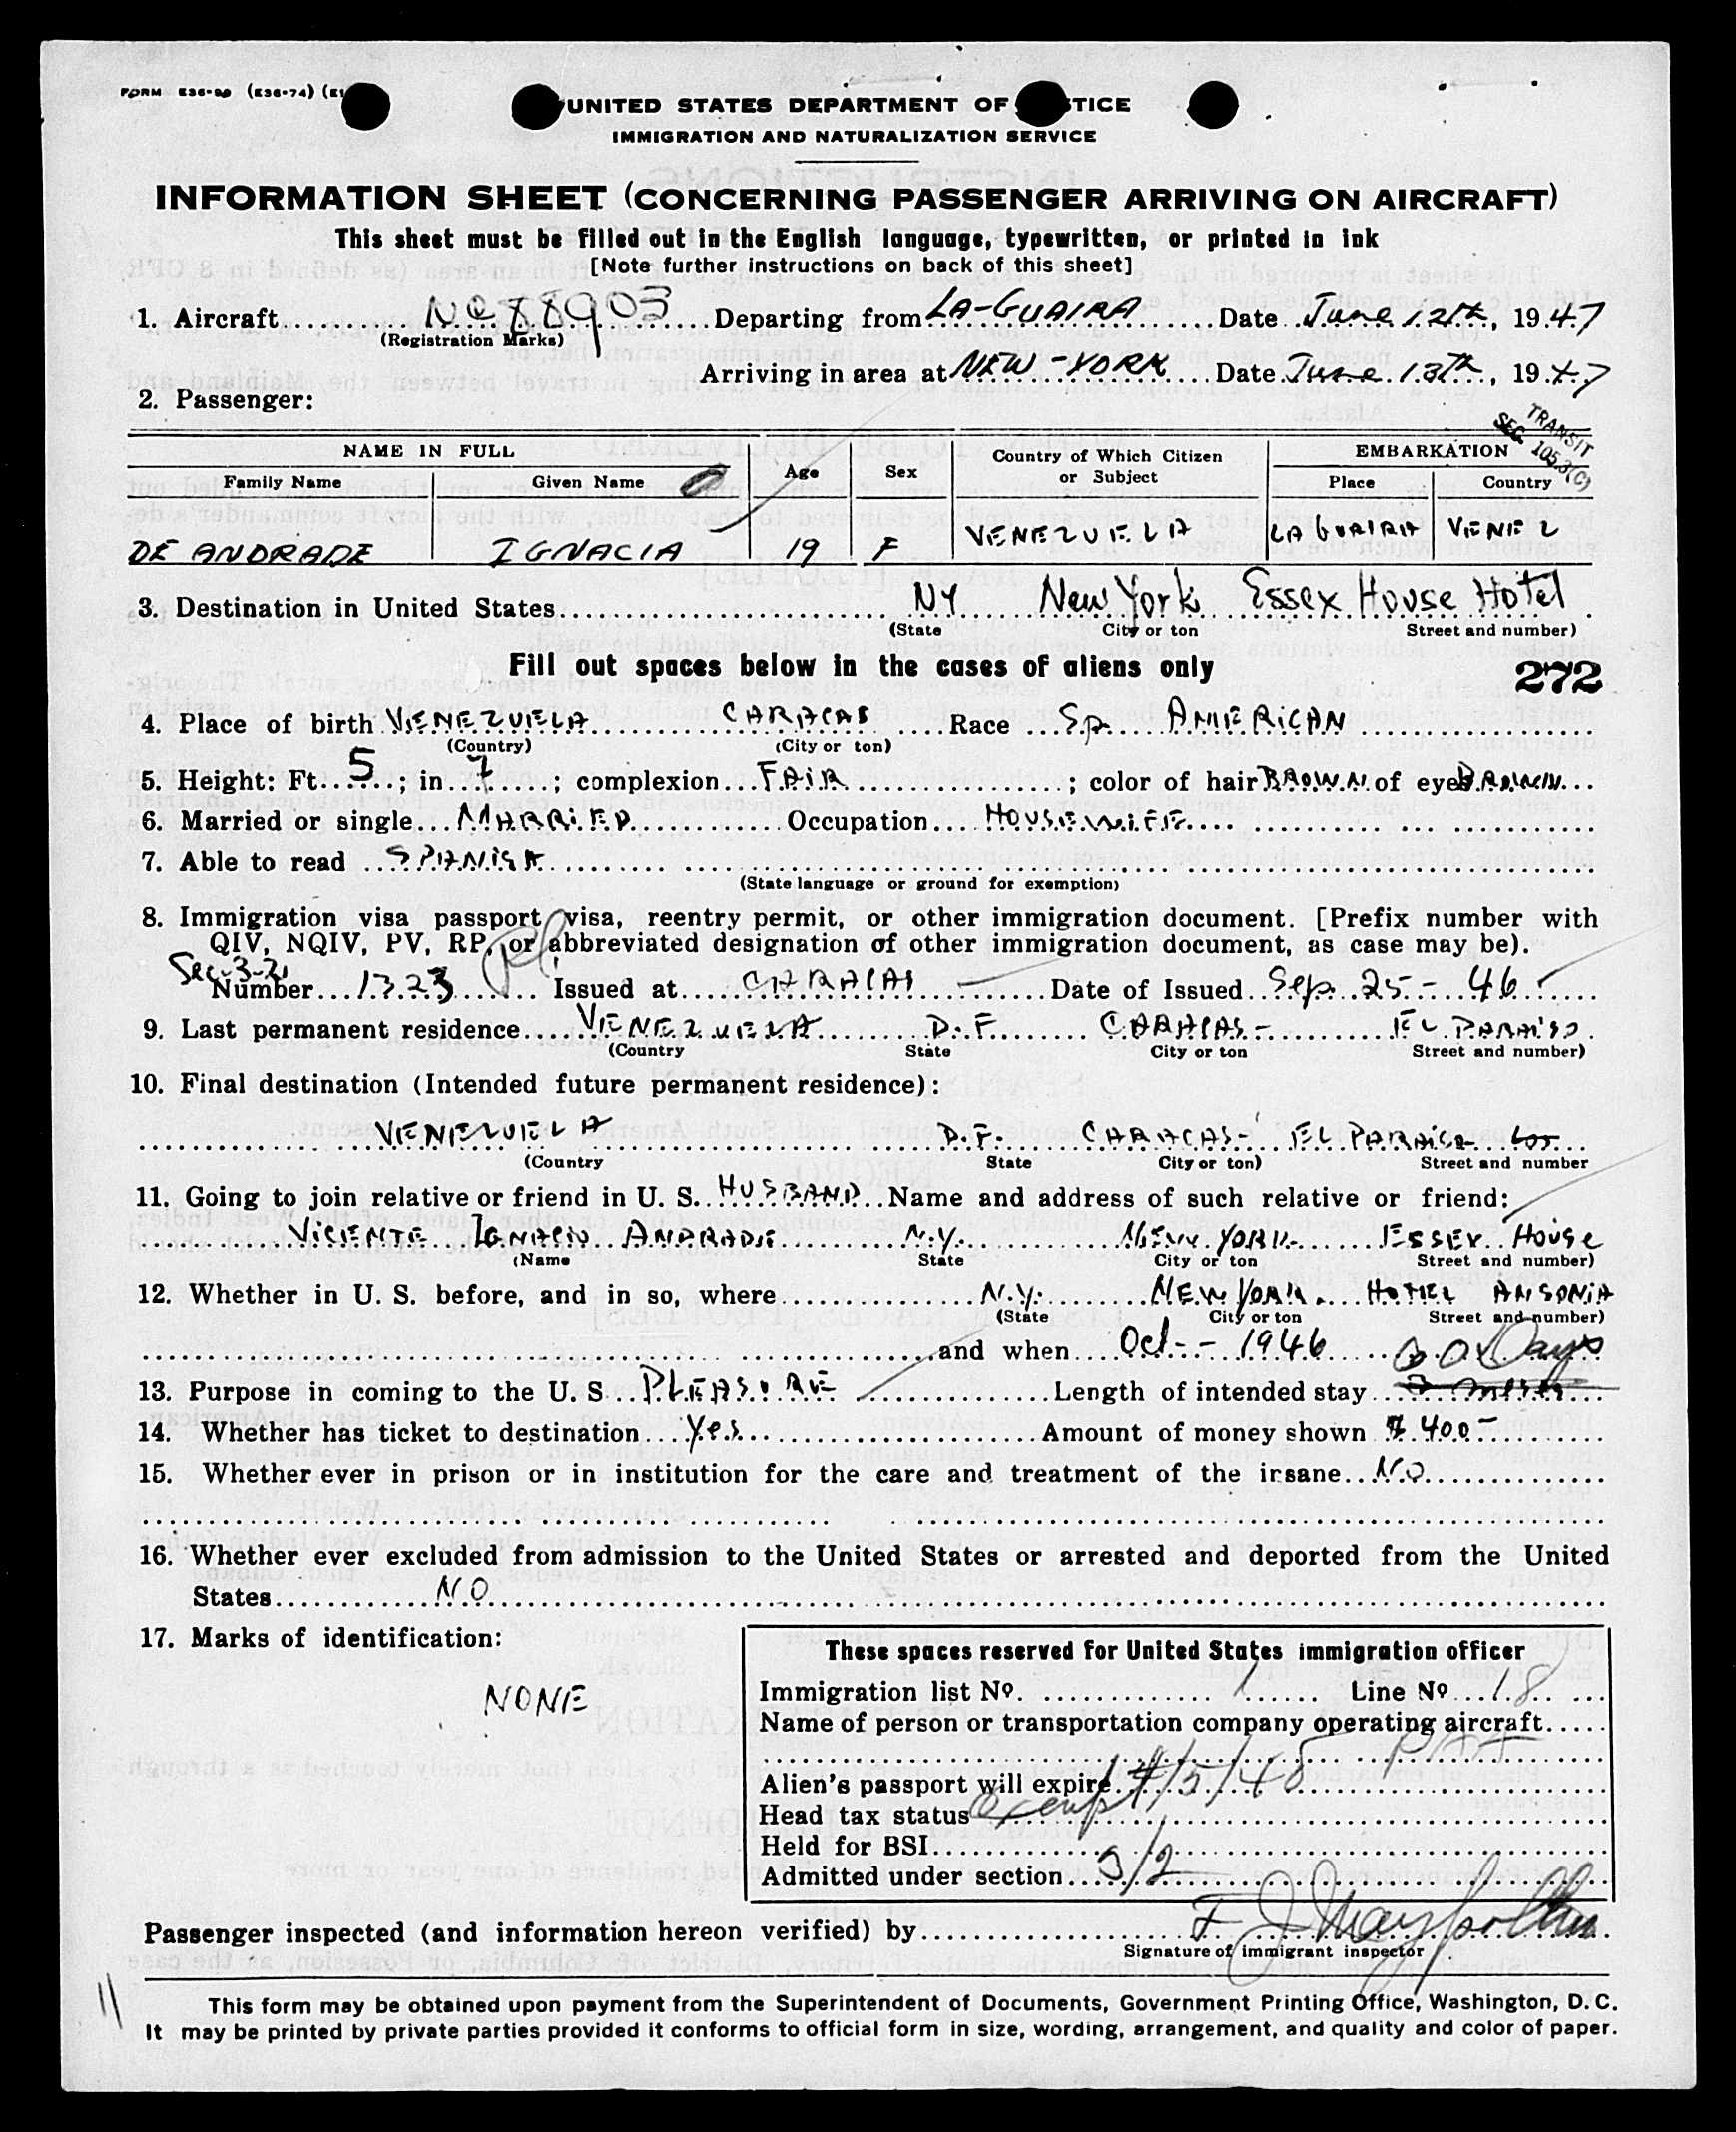 FORM
UNITED STATES DEPARTMENT OF TICE
IMMIGRATION AND NATURALIZATION SERVICE
INFORMATION SHEET (CONCERNING PASSENGER ARRIVING ON AIRCRAFT)
This sheet must be filled out in the English language, typewritten, or printed in ink
[Note further instructions on back of this sheet]
1. Aircraft NC 88903 Departing from LA-GUAIRA Date June 12th, 1947
(Registration Marks)
Arriving in area at NEW-YORK Date June 13th, 1947
2. Passenger:
TRANSIT
SEC. 105.3(C)
NAME IN FULL Age Sex Country of Which Citizen or Subject EMBARKATION
Family Name Given Name Place Country
DE ANDRADE IGNACIA 19 F VENEZUELA LA GUAIRA VENEZ
3. Destination in United States NY New York Essex House Hotel
(State City or ton Street and number)
Fill out spaces below in the cases of aliens only 272
4. Place of birth VENEZUELA CARACAS Race Sp. AMERICAN
(Country) (City or ton)
5. Height: Ft. 5; in 7; complexion FAIR; color of hair BROWN of eyes BROWN
6. Married or single MARRIED Occupation HOUSEWIFE
7. Able to read SPANISH
(State language or ground for exemption)
8. Immigration visa passport visa, reentry permit, or other immigration document. [Prefix number with
QIV, NQIV, PV, RP, or abbreviated designation of other immigration document, as case may be).
Sec-3-2
Number 1323 Issued at CARACAS Date of Issued Sep. 25-46
9. Last permanent residence VENEZUELA D.F. CARACAS- EL PARAISO
(Country State City or ton Street and number)
10. Final destination (Intended future permanent residence):
VENEZUELA D.F. CARACAS- EL PARAISO
(Country State City or ton) Street and number
11. Going to join relative or friend in U. S. HUSBAND Name and address of such relative or friend:
VICENTE IGNACIO ANDRADE N.Y. NEW YORK- ESSEX HOUSE
(Name State City or ton Street and number)
12. Whether in U. S. before, and in so, where N.Y. NEW YORK. HOTEL ANSONIA
(State City or ton Street and number)
and when Oct- - 1946 60 Days
13. Purpose in coming to the U. S PLEASURE Length of intended stay
14. Whether has ticket to destination Yes Amount of money shown $ 400-
15. Whether ever in prison or in institution for the care and treatment of the irsane NO
16. Whether ever excluded from admission to the United States or arrested and deported from the United
States NO
17. Marks of identification:
NONE
These spaces reserved for United States immigration officer
Immigration list No. 1 Line No 18
Name of person or transportation company operating aircraft
PAA
Alien's passport will expire 4/5/48
Head tax status Exempt
Held for BSI
Admitted under section 3/2
Passenger inspected (and information hereon verified) by
Signature of immigrant inspector
11
This form may be obtained upon payment from the Superintendent of Documents, Government Printing Office, Washington, D. C.
It may be printed by private parties provided it conforms to official form in size, wording, arrangement, and quality and color of paper.